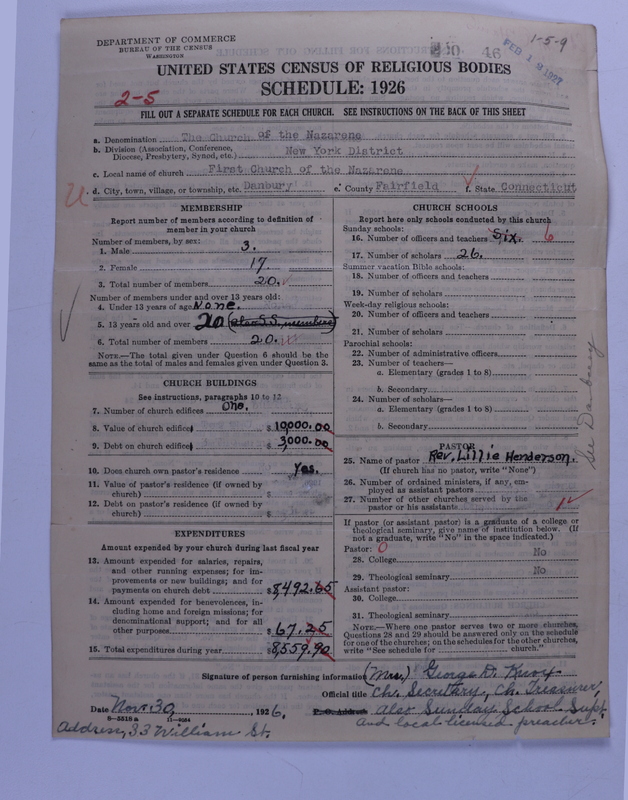 DEPARTMENT OF COMMERCE
BUREAU OF THE CENSUS
WASHINGTON
46
FEB 1 2 1927
1-5-9
UNITED STATES CENSUS OF RELIGIOUS BODIES
SCHEDULE: 1926
2-5
FILL OUT A SEPARATE SCHEDULE FOR EACH CHURCH. SEE INSTRUCTIONS ON THE BACK OF THIS SHEET
a. Denomination The Church of the Nazarene
b. Division (Association, Conference, Diocese, Presbytery, Synod, etc.) New York District
c. Local name of church First Church of the Nazarene
d. City, town, village, or township, etc. Danbury e. County Fairfield f. State Connecticut
MEMBERSHIP
Report number of members according to definition of member in your church
Number of members, by sex:
1. Male 3.
2. Female 17.
3. Total number of members 20.
Number of members under and over 13 years old:
4. Under 13 years of age None.
5. 13 years old and over 20 (also S.S. members)
6. Total number of members 20.
NOTE.—The total given under Question 6 should be the same as the total of males and females given under Question 3.
CHURCH BUILDINGS
See instructions, paragraphs 10 to 12
7. Number of church edifices One.
8. Value of church edifices $10,000.00
9. Debt on church edifices $3,000.00
10. Does church own pastor's residence Yes.
11. Value of pastor's residence (if owned by church) $
12. Debt on pastor's residence (if owned by church) $
EXPENDITURES
Amount expended by your church during last fiscal year
13. Amount expended for salaries, repairs, and other running expenses; for improvements or new buildings; and for payments on church debt $8,492.65
14. Amount expended for benevolences, including home and foreign missions; for denominational support; and for all other purposes $67.25
15. Total expenditures during year $8,559.90
CHURCH SCHOOLS
Report here only schools conducted by this church
Sunday schools:
16. Number of officers and teachers Six. 6
17. Number of scholars 26.
Summer vacation Bible schools:
18. Number of officers and teachers
19. Number of scholars
Week-day religious schools:
20. Number of officers and teachers
21. Number of scholars
Parochial schools:
22. Number of administrative officers
23. Number of teachers—
a. Elementary (grades 1 to 8)
b. Secondary
24. Number of scholars—
a. Elementary (grades 1 to 8)
b. Secondary
See Danbury
PASTOR
25. Name of pastor Rev. Lillie Henderson.
(If church has no pastor, write "None")
26. Number of ordained ministers, if any, employed as assistant pastors
27. Number of other churches served by the pastor or his assistants
If pastor (or assistant pastor) is a graduate of a college or theological seminary, give name of institution below. (If not a graduate, write "No" in the space indicated.)
Pastor: 0
28. College No
29. Theological seminary No
Assistant pastor:
30. College
31. Theological seminary
NOTE.—Where one pastor serves two or more churches, Questions 28 and 29 should be answered only on the schedule for one of the churches; on the schedules for the other churches, write "See schedule for church."
Signature of person furnishing information (Mrs.) George D.
Official title Ch. Secretary, Ch. Treasurer,
Date Nov. 30, 1926. P. O. Address also Sunday School Supt.
8-5518 a 11-9264 and local licensed preacher.
Address, 33 William St.